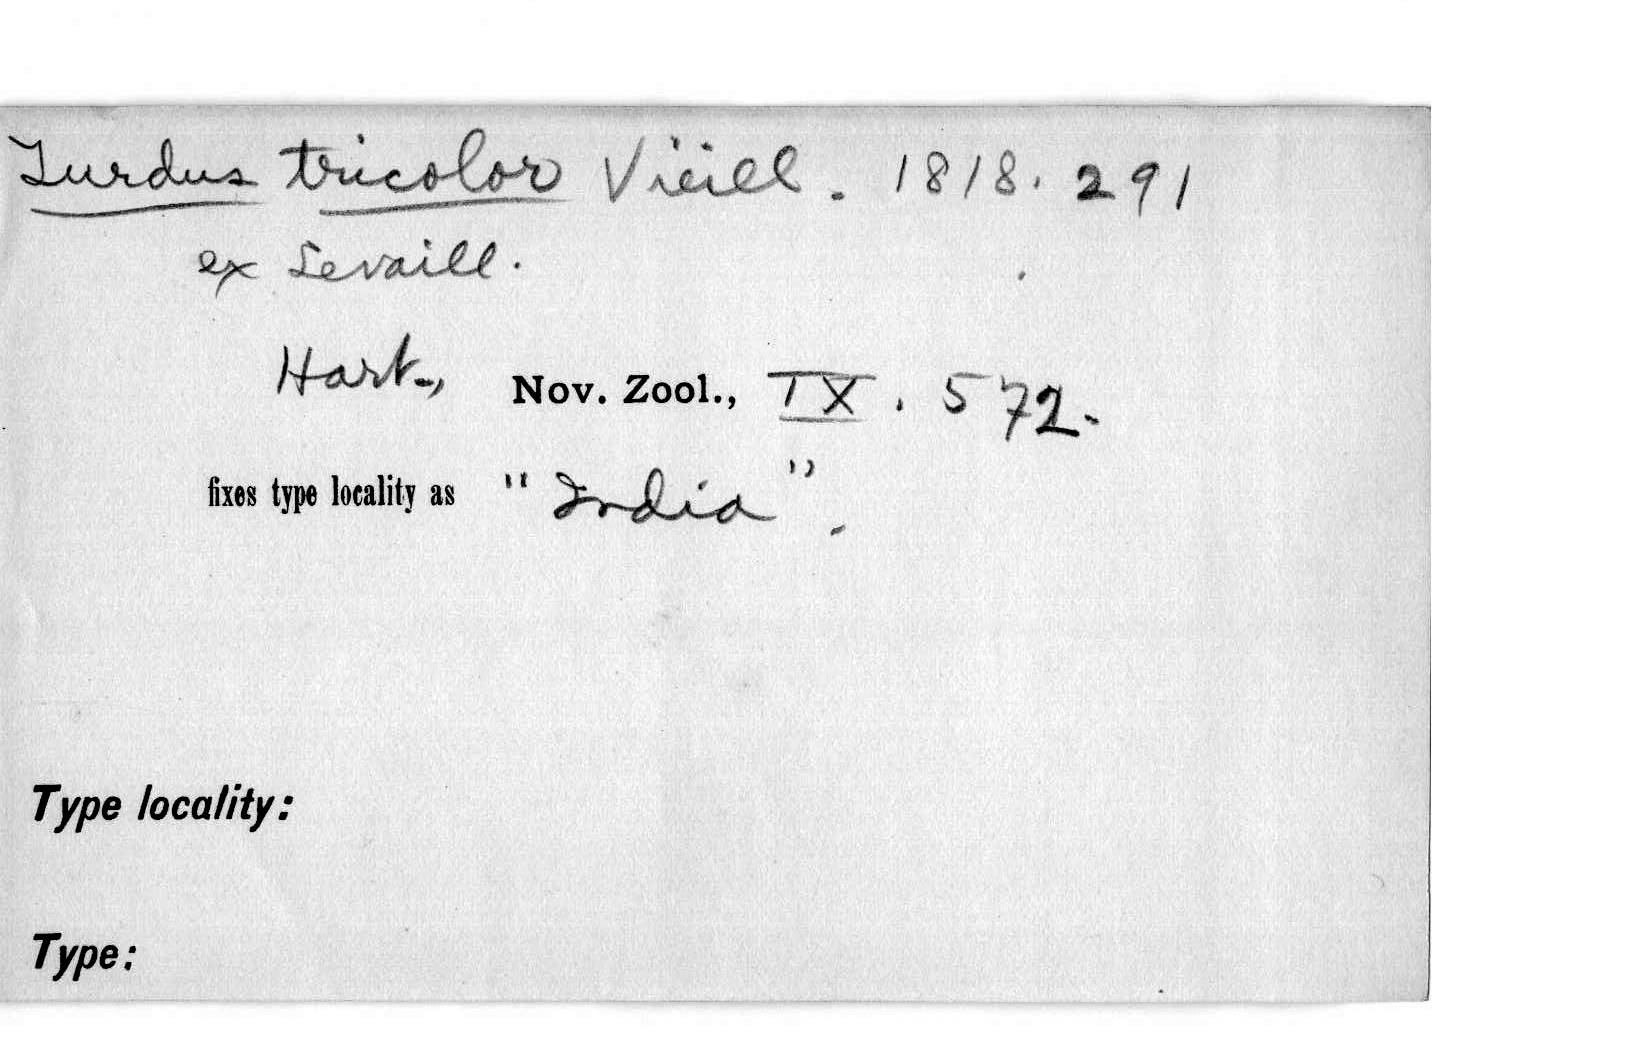 Turdus tricolor Vieill. 1818. 291
ex Levaill.
Hart., Nov. Zool., IX. 572.
fixes type locality as "India".
Type locality:
Type: